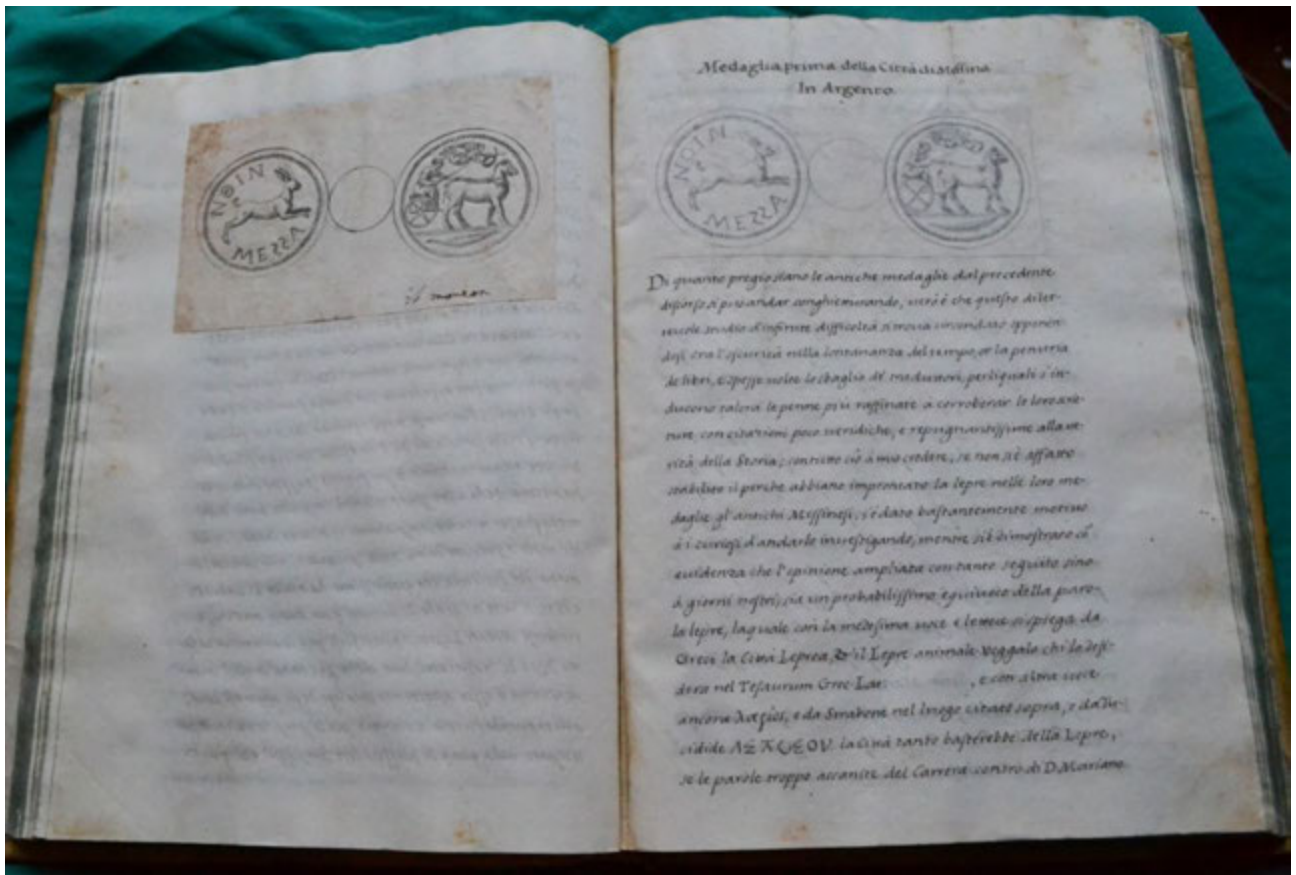 NOIN
MESSA
il
Medaglia prima della Città di Messina
In Argento.
NOIN
MESSA
Di quanto pregio siano le antiche medaglie dal precedente
discorso si può andar conghietturando, vero è che questo dilet-
tevole studio d'infinite difficoltà si trova circondato opponen-
dosi ora l'oscurità nella lontananza del tempo, or la penuria
de libri, e spesse volte lo sbaglio de traduttori, per li quali s'in-
ducono talora le penne più raffinate a corroborar le loro
con citazioni poco veridiche, e repugnantissime alla ve-
rità della Storia; contutto ciò à mio credere, se non s'è affatto
stabilito il perche abbiano improntato la lepre nelle loro me-
daglie gl'antichi Messinesi, s'è dato bastantemente motivo
à i curiosi d'andarlo investigando, mentre si è dimostrato cō
evidenza che l'opinione ampliata con tanto seguito sino
à giorni nostri, sia un probabilissimo equivoco della paro-
la lepre, la quale con la medesima voce e lettere si spiega da
Greci la Città Leprea, & il Lepre animale veggalo chi lo desi-
dera nel Tesaurum Grec-Lat. , e con altra voce
ancora , e da Strabone nel luogo citato sopra, e da Tu-
cidide la Città tanto basterebbe della Lepre,
se le parole troppo accanite del Carrera contro di D. Mariano